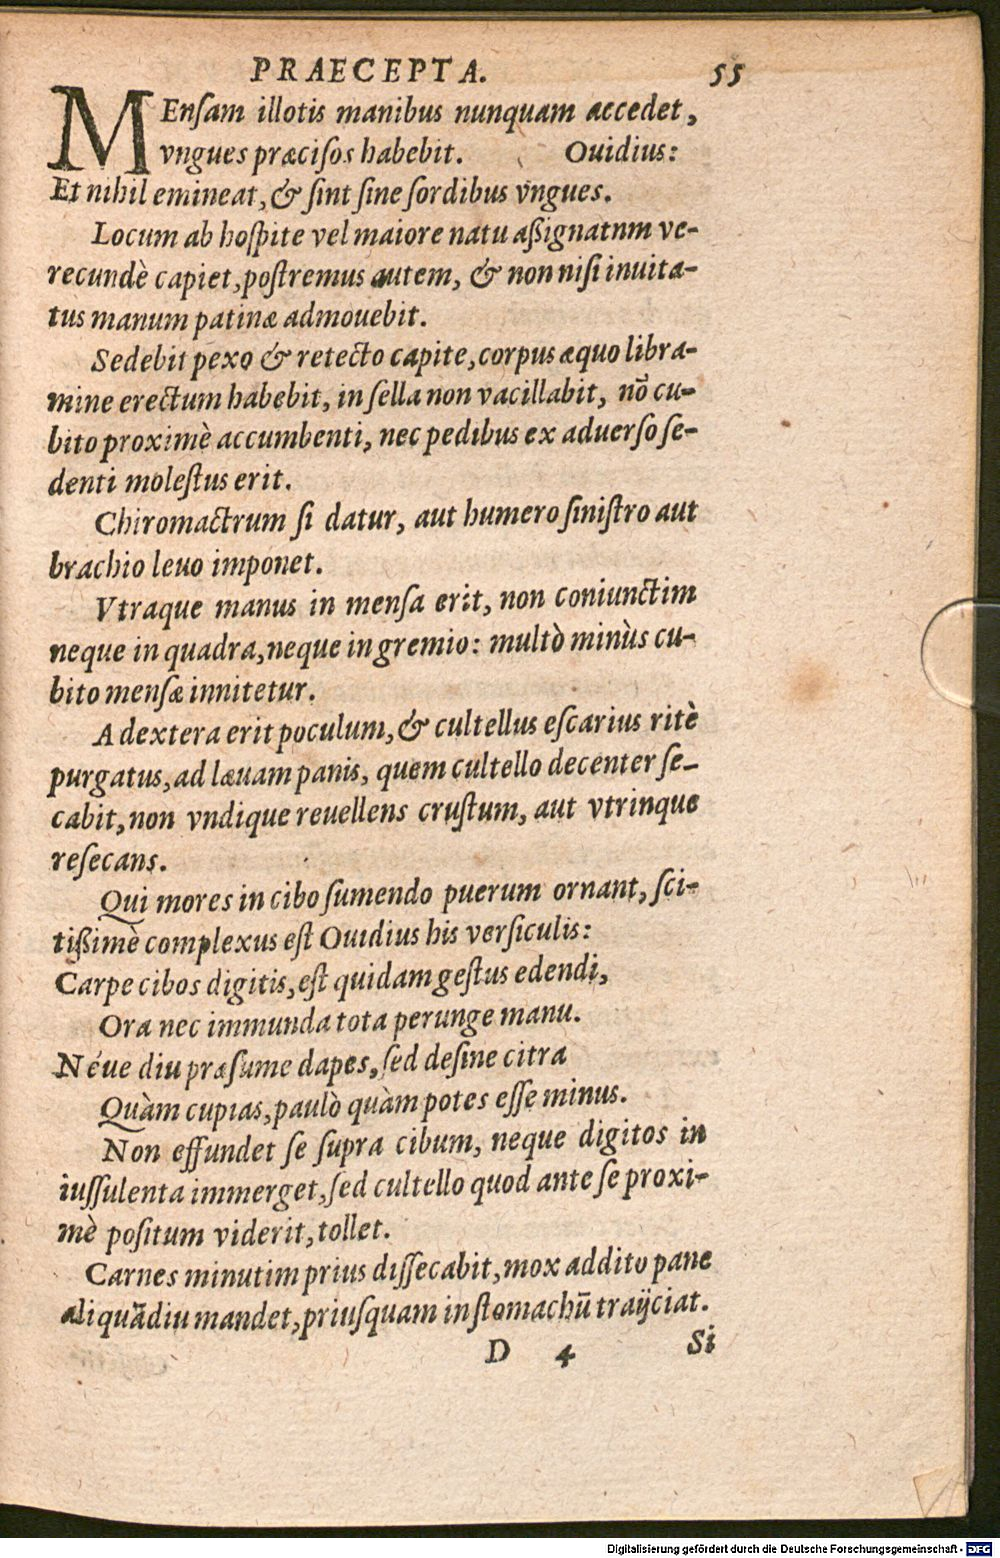 PRAECEPTA. 55
MEnſam illotis manibus nunquam accedet,
vngues præciſos habebit. Ouidius:
Et nihil emineat, & ſint ſine ſordibus vngues.
Locum ab hoſpite vel maiore natu aßignatnm ve-
recundè capiet, poſtremus autem, & non niſi inuita-
tus manum patinæ admouebit.
Sedebit pexo & retecto capite, corpus æquo libra-
mine erectum habebit, in ſella non vacillabit, nō cu-
bito proximè accumbenti, nec pedibus ex aduerſo ſe-
denti moleſtus erit.
Chiromactrum ſi datur, aut humero ſiniſtro aut
brachio leuo imponet.
Vtraque manus in menſa erit, non coniunctim
neque in quadra, neque in gremio: multò minùs cu-
bito menſæ innitetur.
A dextera erit poculum, & cultellus eſcarius ritè
purgatus, ad læuam panis, quem cultello decenter ſe-
cabit, non vndique reuellens cruſtum, aut vtrinque
reſecans.
Qui mores in cibo ſumendo puerum ornant, ſci-
tißimè complexus eſt Ouidius his verſiculis:
Carpe cibos digitis, eſt quidam geſtus edendi,
Ora nec immunda tota perunge manu.
Néue diu præſume dapes, ſed deſine citra
Quàm cupias, paulò quàm potes eſſe minus.
Non effundet ſe ſupra cibum, neque digitos in
iuſſulenta immerget, ſed cultello quod ante ſe proxi-
mè poſitum viderit, tollet.
Carnes minutim prius diſſecabit, mox addito pane
aliquādiu mandet, priuſquam in ſtomachū traijciat.
D 4 Si
Digitalisierung gefördert durch die Deutsche Forschungsgemeinschaft - DFG